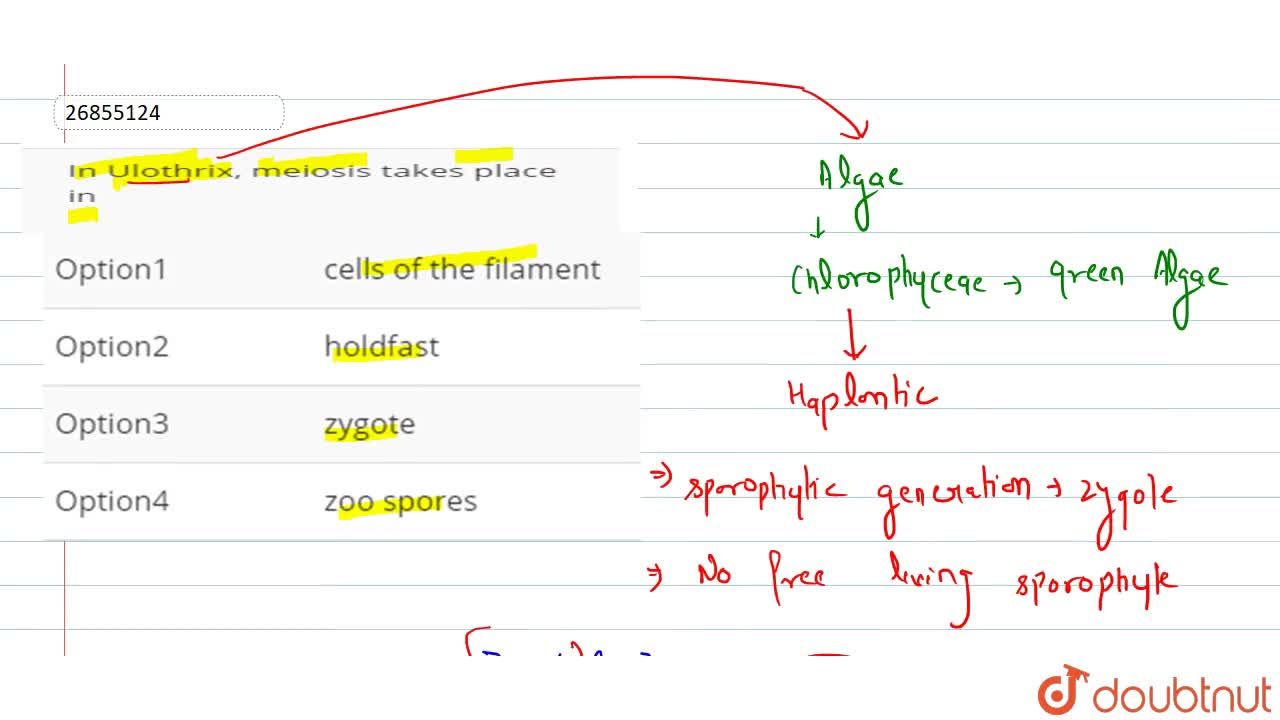 26855124
In Ulothrix, meiosis takes place
in
Option1 cells of the filament
Option2 holdfast
Option3 zygote
Option4 zoo spores
Algae
↓
Chlorophyceae → green Algae
↓
Haplontic
⇒ sporophytic generation → zygote
⇒ No free living sporophyte
doubtnut